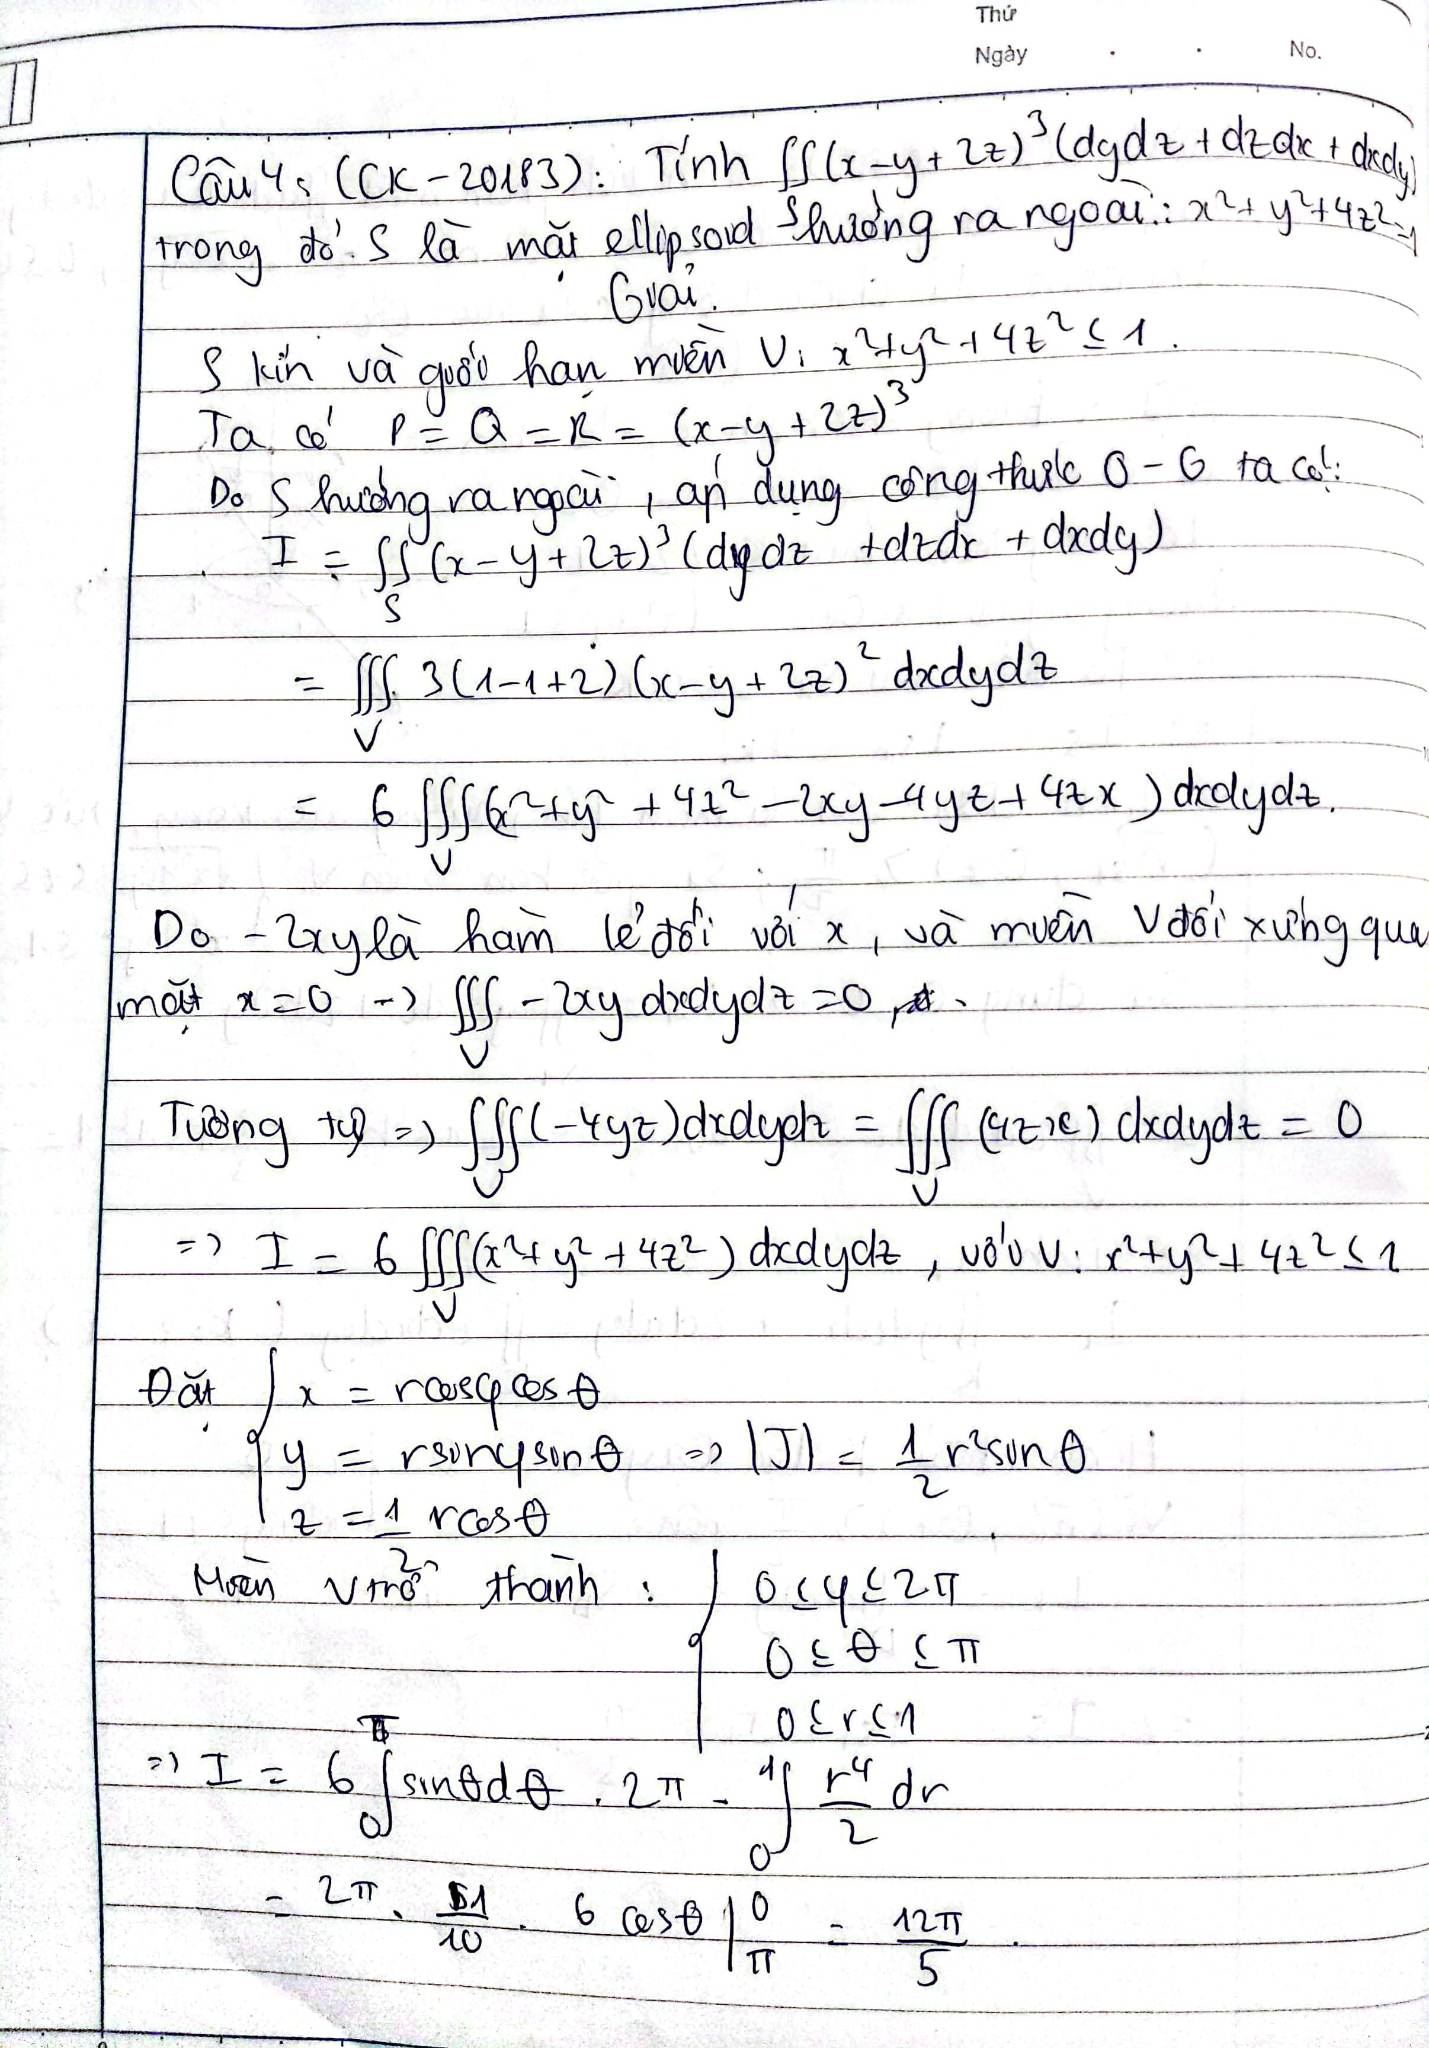 Thứ
Ngày . . No.
Câu 4: (CK - 20183): Tính ∬(x-y+2z)³(dydz + dzdx + dxdy)
S
trong đó S là mặt ellipsoid hướng ra ngoài: x²+y²+4z²=1
Giải.
S kín và giới hạn miền V: x²+y²+4z² ≤ 1.
Ta có P = Q = R = (x-y+2z)³
Do S hướng ra ngoài, áp dụng công thức O-G ta có:
I = ∬(x-y+2z)³(dydz + dzdx + dxdy)
S
= ∭ 3(1-1+2)(x-y+2z)² dxdydz
V
= 6 ∭(x²+y²+4z²-2xy-4yz+4zx) dxdydz.
V
Do -2xy là hàm lẻ đối với x, và miền V đối xứng qua
mặt x=0 → ∭ -2xy dxdydz = 0,
V
Tương tự ⇒ ∭(-4yz)dxdydz = ∭(4zx) dxdydz = 0
V V
⇒ I = 6 ∭(x²+y²+4z²) dxdydz, với V: x²+y²+4z² ≤ 1
V
Đặt { x = rcosφcosθ
y = rsinφsinθ ⇒ |J| = 1/2 r²sinθ
z = 1/2 rcosθ
Miền V trở thành: { 0 ≤ φ ≤ 2π
0 ≤ θ ≤ π
0 ≤ r ≤ 1
⇒ I = 6 ∫₀^π sinθdθ . 2π . ∫₀¹ r⁴/2 dr
= 2π . 1/10 . 6 cosθ |⁰_π = 12π/5 .